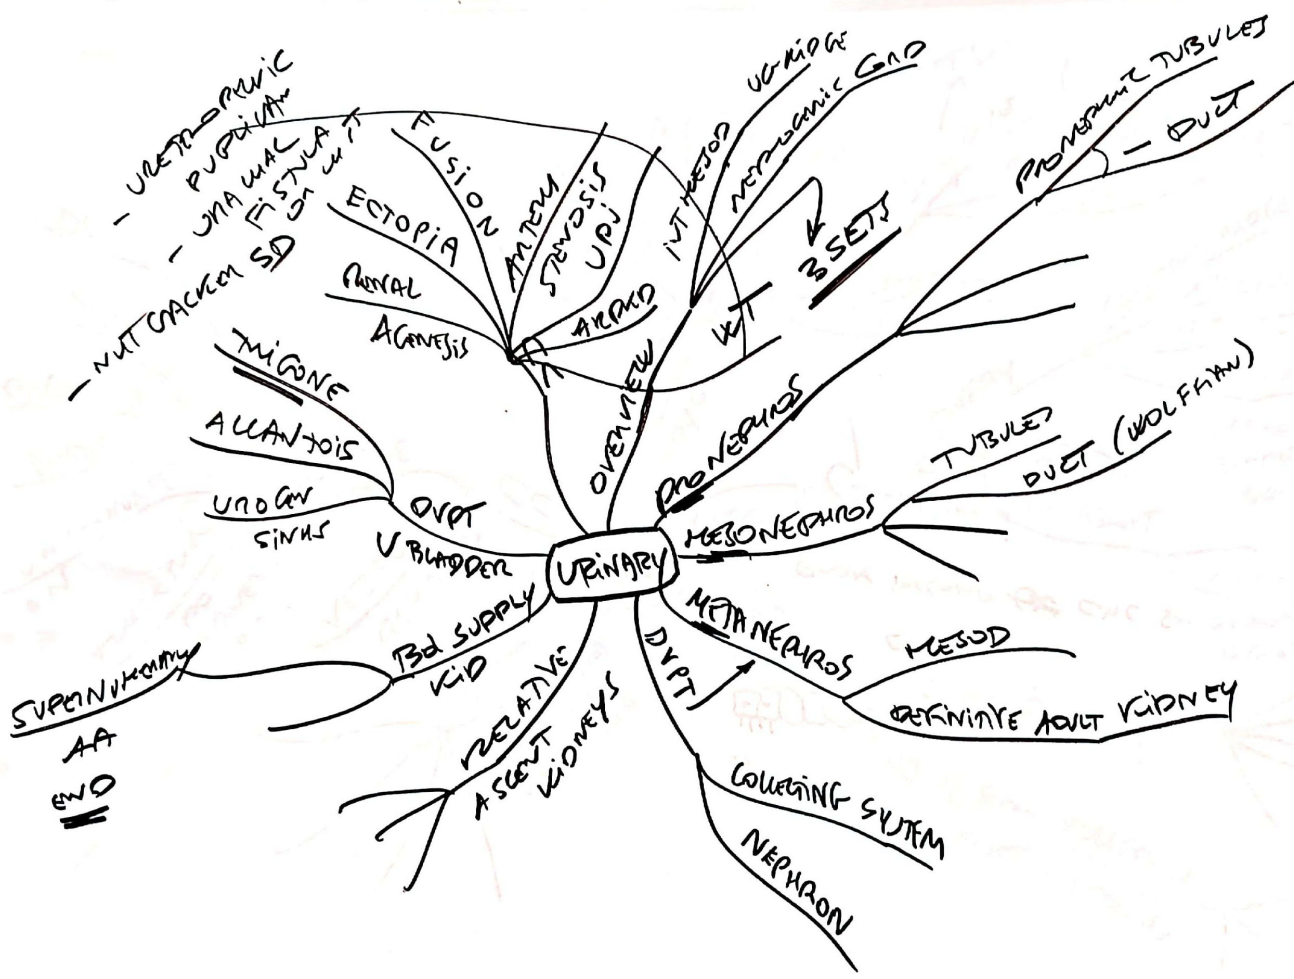 URINARY
OVERVIEW
INT MESOD
UG RIDGE
NEPROGENIC CORD
3 SETS
PRONEPHROS
PRONEPHRIC TUBULES
- DUCT
MESONEPHROS
TUBULES
DUCT (WOLFFIAN)
METANEPHROS
MESOD
DEFINITIVE ADULT KIDNEY
DVPT
COLLECTING SYSTEM
NEPHRON
RELATIVE
ASCENT
KIDNEYS
Bd SUPPLY
KID
SUPERNUMERARY
AA
END
DVPT
U BLADDER
TRIGONE
ALLANTOIS
UROGEN
SINUS
RENAL
AGENESIS
ECTOPIA
FUSION
STENOSIS
UPJ
ARPKD
WT
- URETROPELVIC
- URACHAL
FISTULA
- NUTCRACKER SD